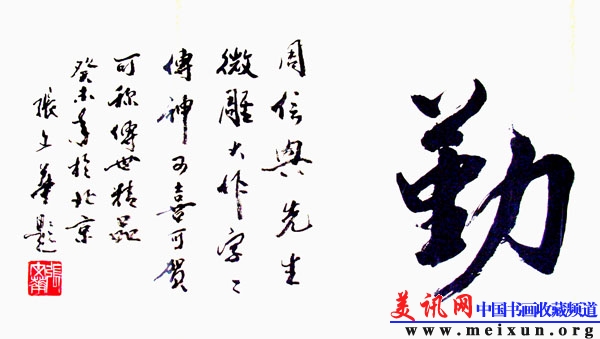 勤
周信興先生
微雕大作字〻
傳神可喜可賀
可称傳世精品
癸未春於北京
張文華題
張文華
美讯网 中国书画收藏频道
www.meixun.org